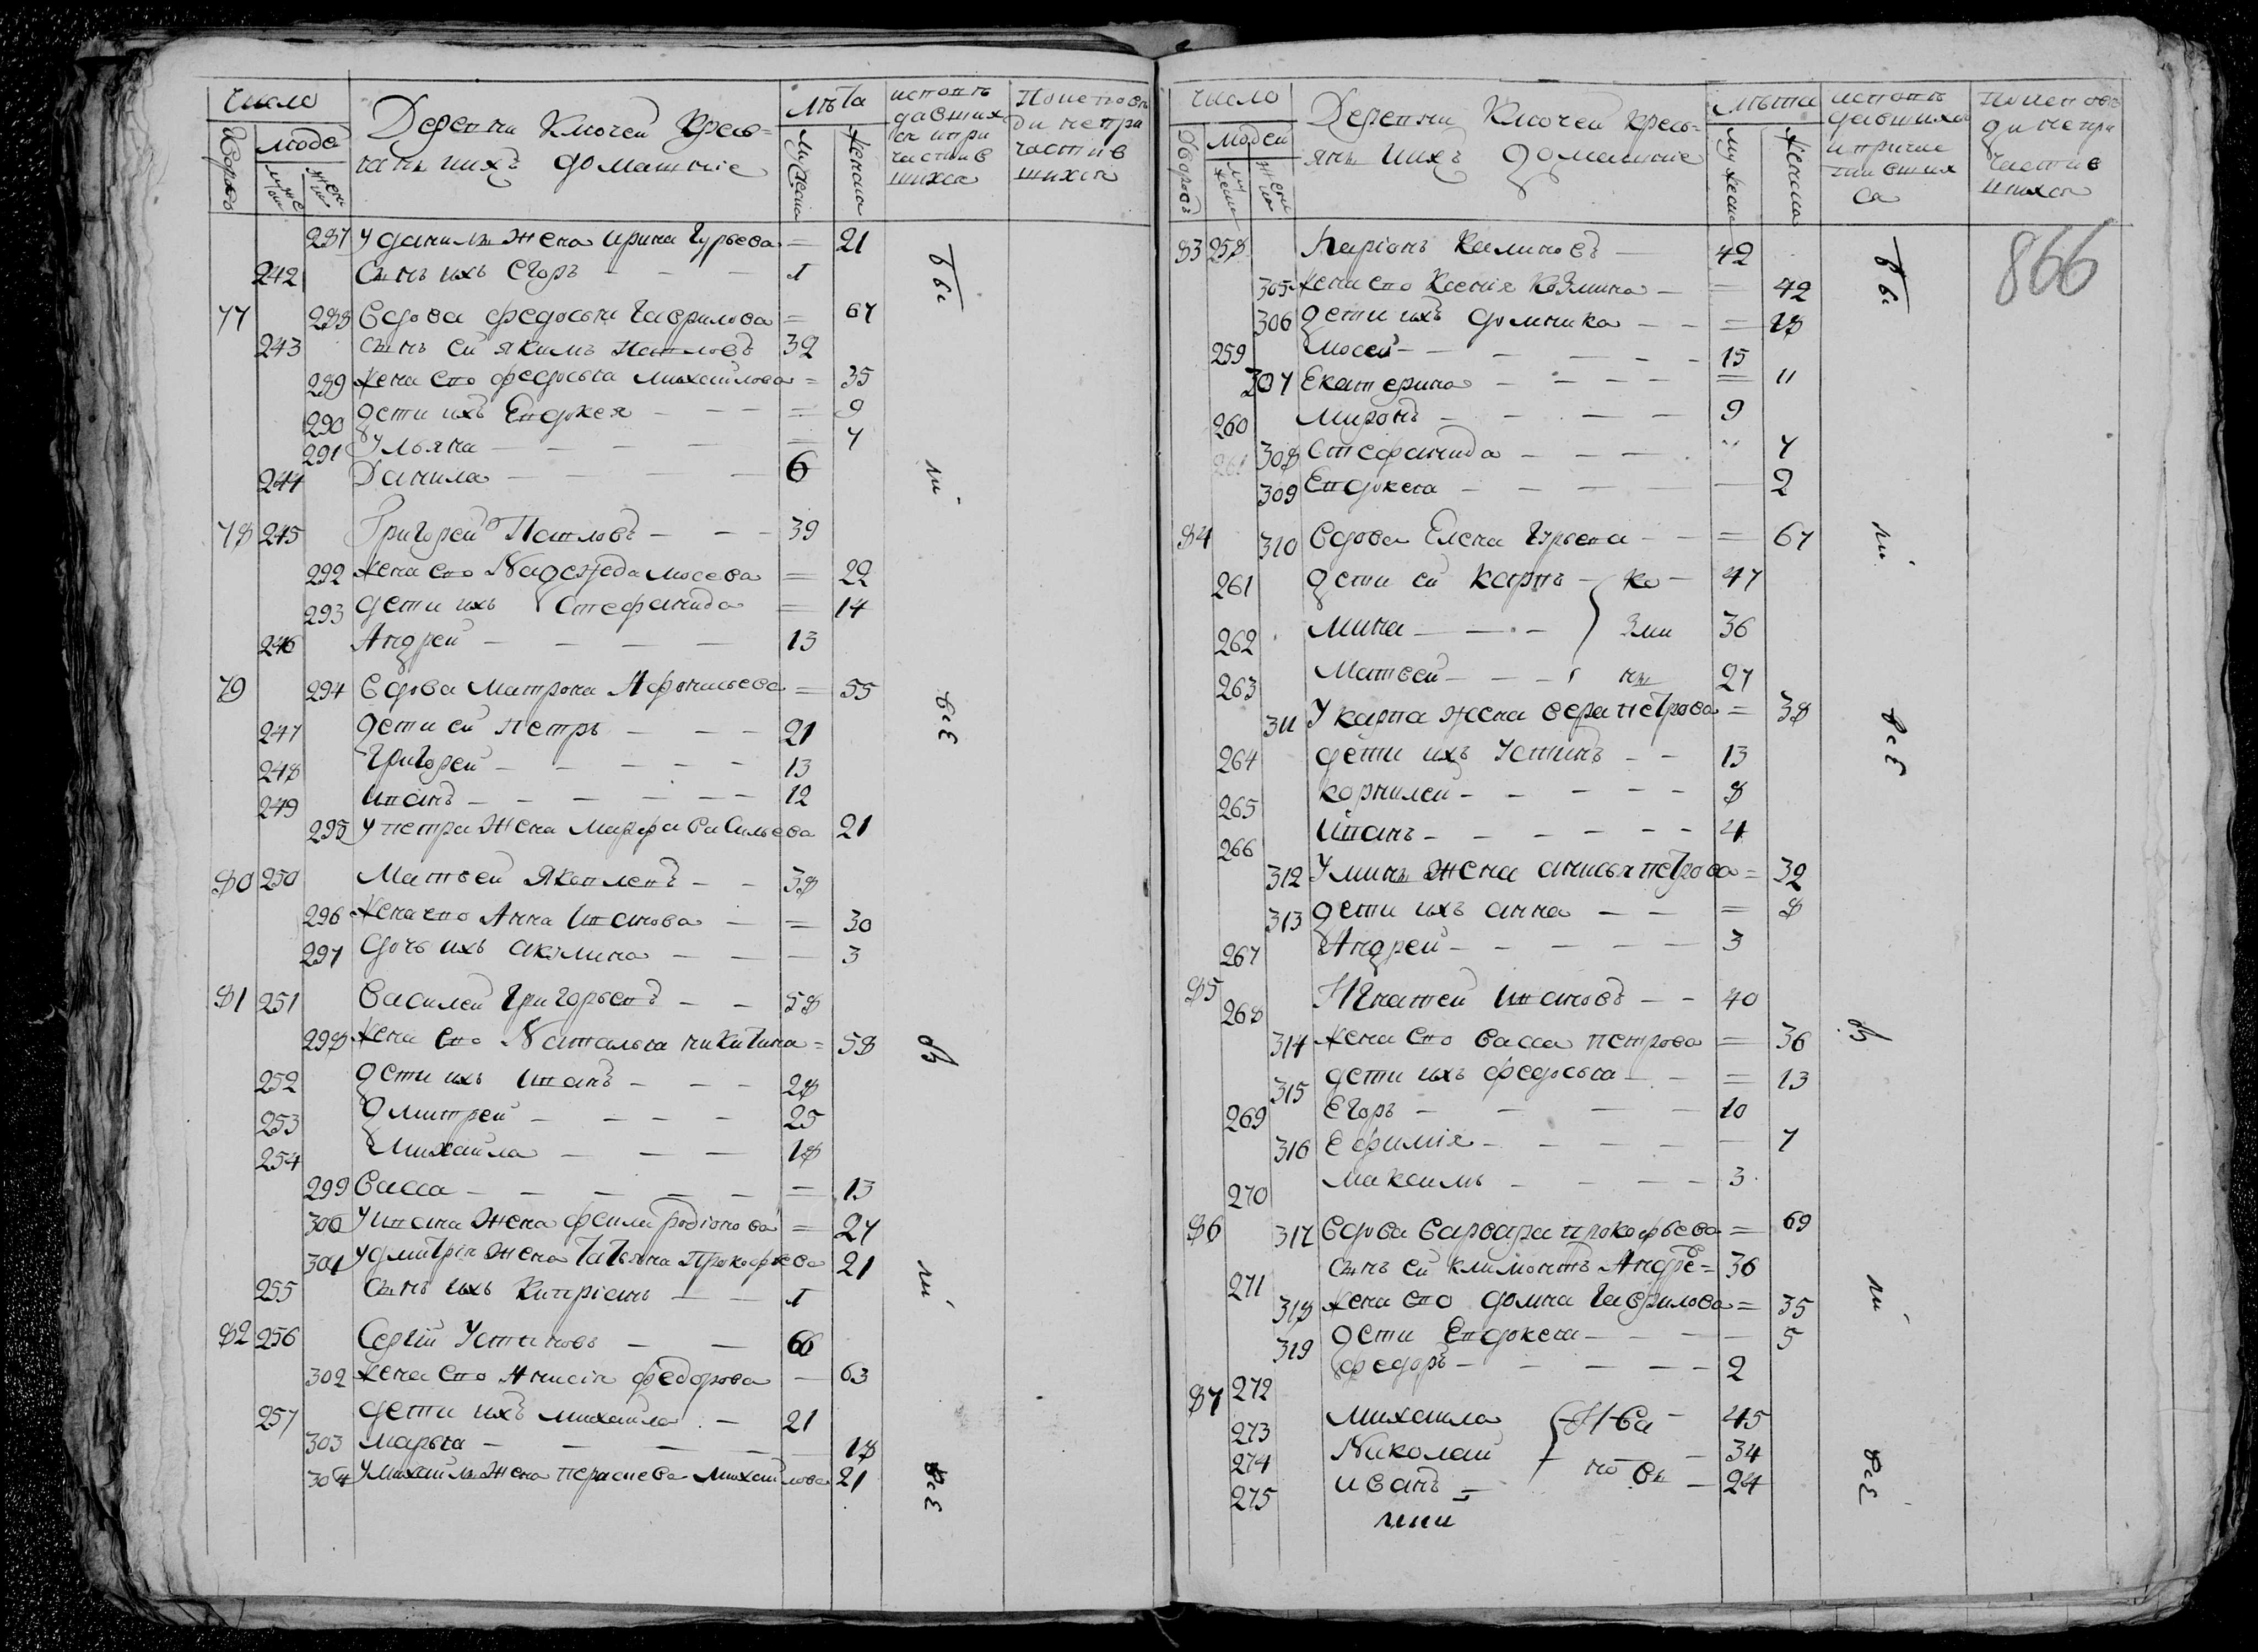 Число
Дворовъ
людей
мужеска
женска
Деревни Ключей Кресь=
яны ихъ домашние
лѣта
мужеска
женска
исповѣ
давших
ся и при
частив
шихся
Исповѣ
ди не при
частив
шихся
287 У данилы жена ирина Гурьева — 21
242 Сынъ ихъ Егоръ — — — 1
77 288 Вдова федосья Гаврилова = 67
243 сынъ ей якимъ Павловъ 32
289 жена ево федосья михайлова = 35
290 дети ихъ Евдокея — — — = 9
291 Ульяна — — — — = 7
244 Данила — — — — 6
78 245 Григорей Павловъ — — — 39
292 жена ево Надежда мосеева = 22
293 дети ихъ Стефанида = 14
246 Андрей — — — — 13
79 294 Вдова Матрона Афонасьева = 55
247 дети ей Петръ — — — 21
248 Григорей — — — — — 13
249 иванъ — — — — — — 12
295 У петра жена Марфа Васильева 21
80 250 Матвей Яковлевъ — — 38
296 жена ево Анна Иванова — = 30
297 дочь ихъ акулина — — — 3
81 251 Василей Григорьевъ — — 58
298 жена ево Наталья никитина = 58
252 дети ихъ Иванъ — — — 28
253 дмитрей — — — — 25
254 Михайла — — — 18
299 Васса — — — — — — 13
300 У ивана жена фекла родионова = 27
301 У дмитрія жена Татьяна Прокофьева 21
255 сынъ ихъ Кипріянъ — — 1
82 256 Сергій Устиновъ — — 66
302 жена ево Анисія федорова — 63
257 дети ихъ михайла — 21
303 марья — — — — — 18
304 У михайлы жена михайлова 21
вы
ли
всѣ
вы
ли
всѣ
Число
Дворовъ
людей
мужеска
женска
Деревни Ключей кресь-
яны ихъ домашние
лѣта
мужеска
женска
исповѣ
давшихся
и причас
тивших
ся
Исповѣ
ди не при
частив
шихся
866
83 258 Ларіонъ Калиновъ — 42
305 жена ево Ксенія Козмина — = 42
306 дети ихъ домника — — = 18
259 Мосей — — — — — 15
307 Екатерина — — — — = 11
260 Миронъ — — — — 9
261 308 Стефанида — — — " 7
309 Евдокея — — — — — 2
84 310 Вдова Елена Гурьева — — = 67
261 дети ей карпъ — ко — 47
262 мина — — — зми 36
263 Матвей — — — ны 27
311 У карпа жена вера петрова = 38
264 дети ихъ Устинъ — — 13
265 корнилей — — — — — 8
266 Иванъ — — — — — — 4
312 У мины жена анисья петрова = 32
313 дети ихъ анна — — = 8
267 Андрей — — — — — 3
85 268 Игнатей Ивановъ — — 40
314 жена ево васса петрова = 36
315 дети ихъ федосья — — = 13
269 Егоръ — — — — 10
316 Ефимія — — — — — 7
270 максимъ — — — — 3
86 317 Вдова Варвара прокофьева = 69
271 сынъ ей климонтъ Андрѣ= 36
318 жена ево домна Гаврилова = 35
319 дети Евдокея — — — — 5
272 федоръ — — — — — 2
87 273 михаила Ива — 45
274 Николай — 34
275 иванъ — новы — 24
вы
ли
всѣ
ли
всѣ